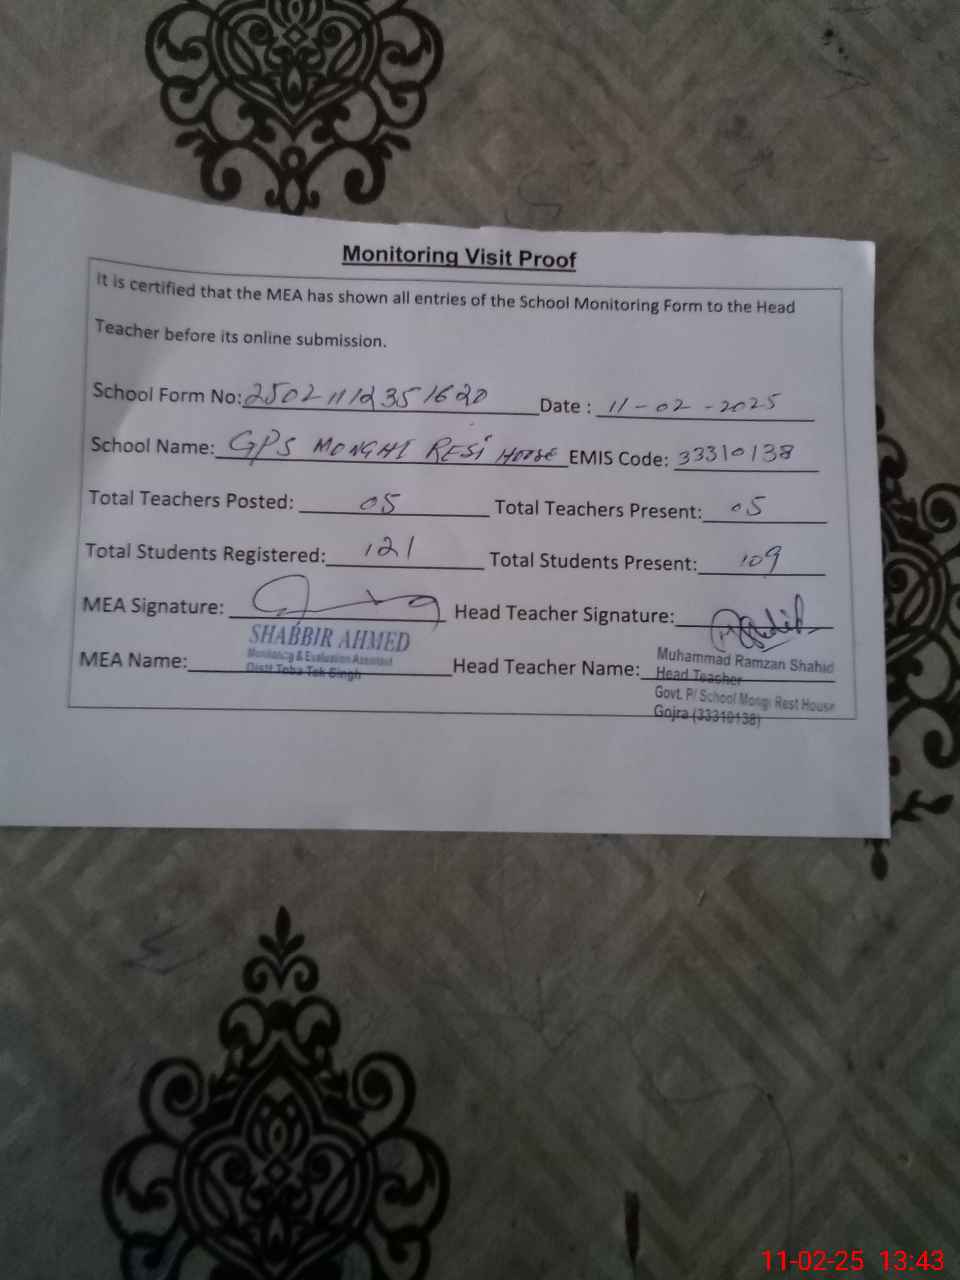 Monitoring Visit Proof
It is certified that the MEA has shown all entries of the School Monitoring Form to the Head
Teacher before its online submission.
School Form No: 25021112351620 Date : 11-02-2025
School Name: GPS MONGHI REST HOUSE EMIS Code: 33310138
Total Teachers Posted: 05 Total Teachers Present: 05
Total Students Registered: 121 Total Students Present: 109
MEA Signature: Head Teacher Signature:
SHABBIR AHMED
Monitoring & Evaluation Assistant
Distt Toba Tek Singh
MEA Name: Head Teacher Name:
Muhammad Ramzan Shahid
Head Teacher
Govt. P/ School Mongi Rest House
Gojra (33310138)
11-02-25 13:43